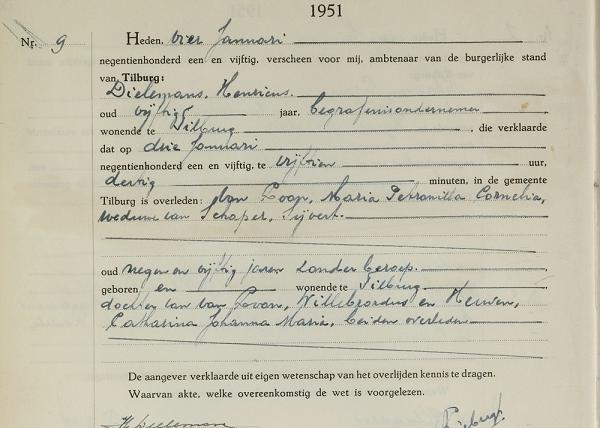 1951
Nr. 9
Heden, vier Januari
negentienhonderd een en vijftig, verscheen voor mij, ambtenaar van de burgerlijke stand
van Tilburg:
Dielemans, Henricus.
oud vijftig jaar, begrafenisondernemer
wonende te Tilburg, die verklaarde
dat op drie Januari
negentienhonderd een en vijftig, te vijftien uur,
dertig minuten, in de gemeente
Tilburg is overleden: van Loon, Maria Petronilla Cornelia,
weduwe van Schaper, Sijvert.
oud negen en vijftig jaren zonder beroep.
geboren en wonende te Tilburg,
dochter van van Loon, Willebrordus en Heuven,
Catharina Johanna Maria, beiden overleden
De aangever verklaarde uit eigen wetenschap van het overlijden kennis te dragen.
Waarvan akte, welke overeenkomstig de wet is voorgelezen.